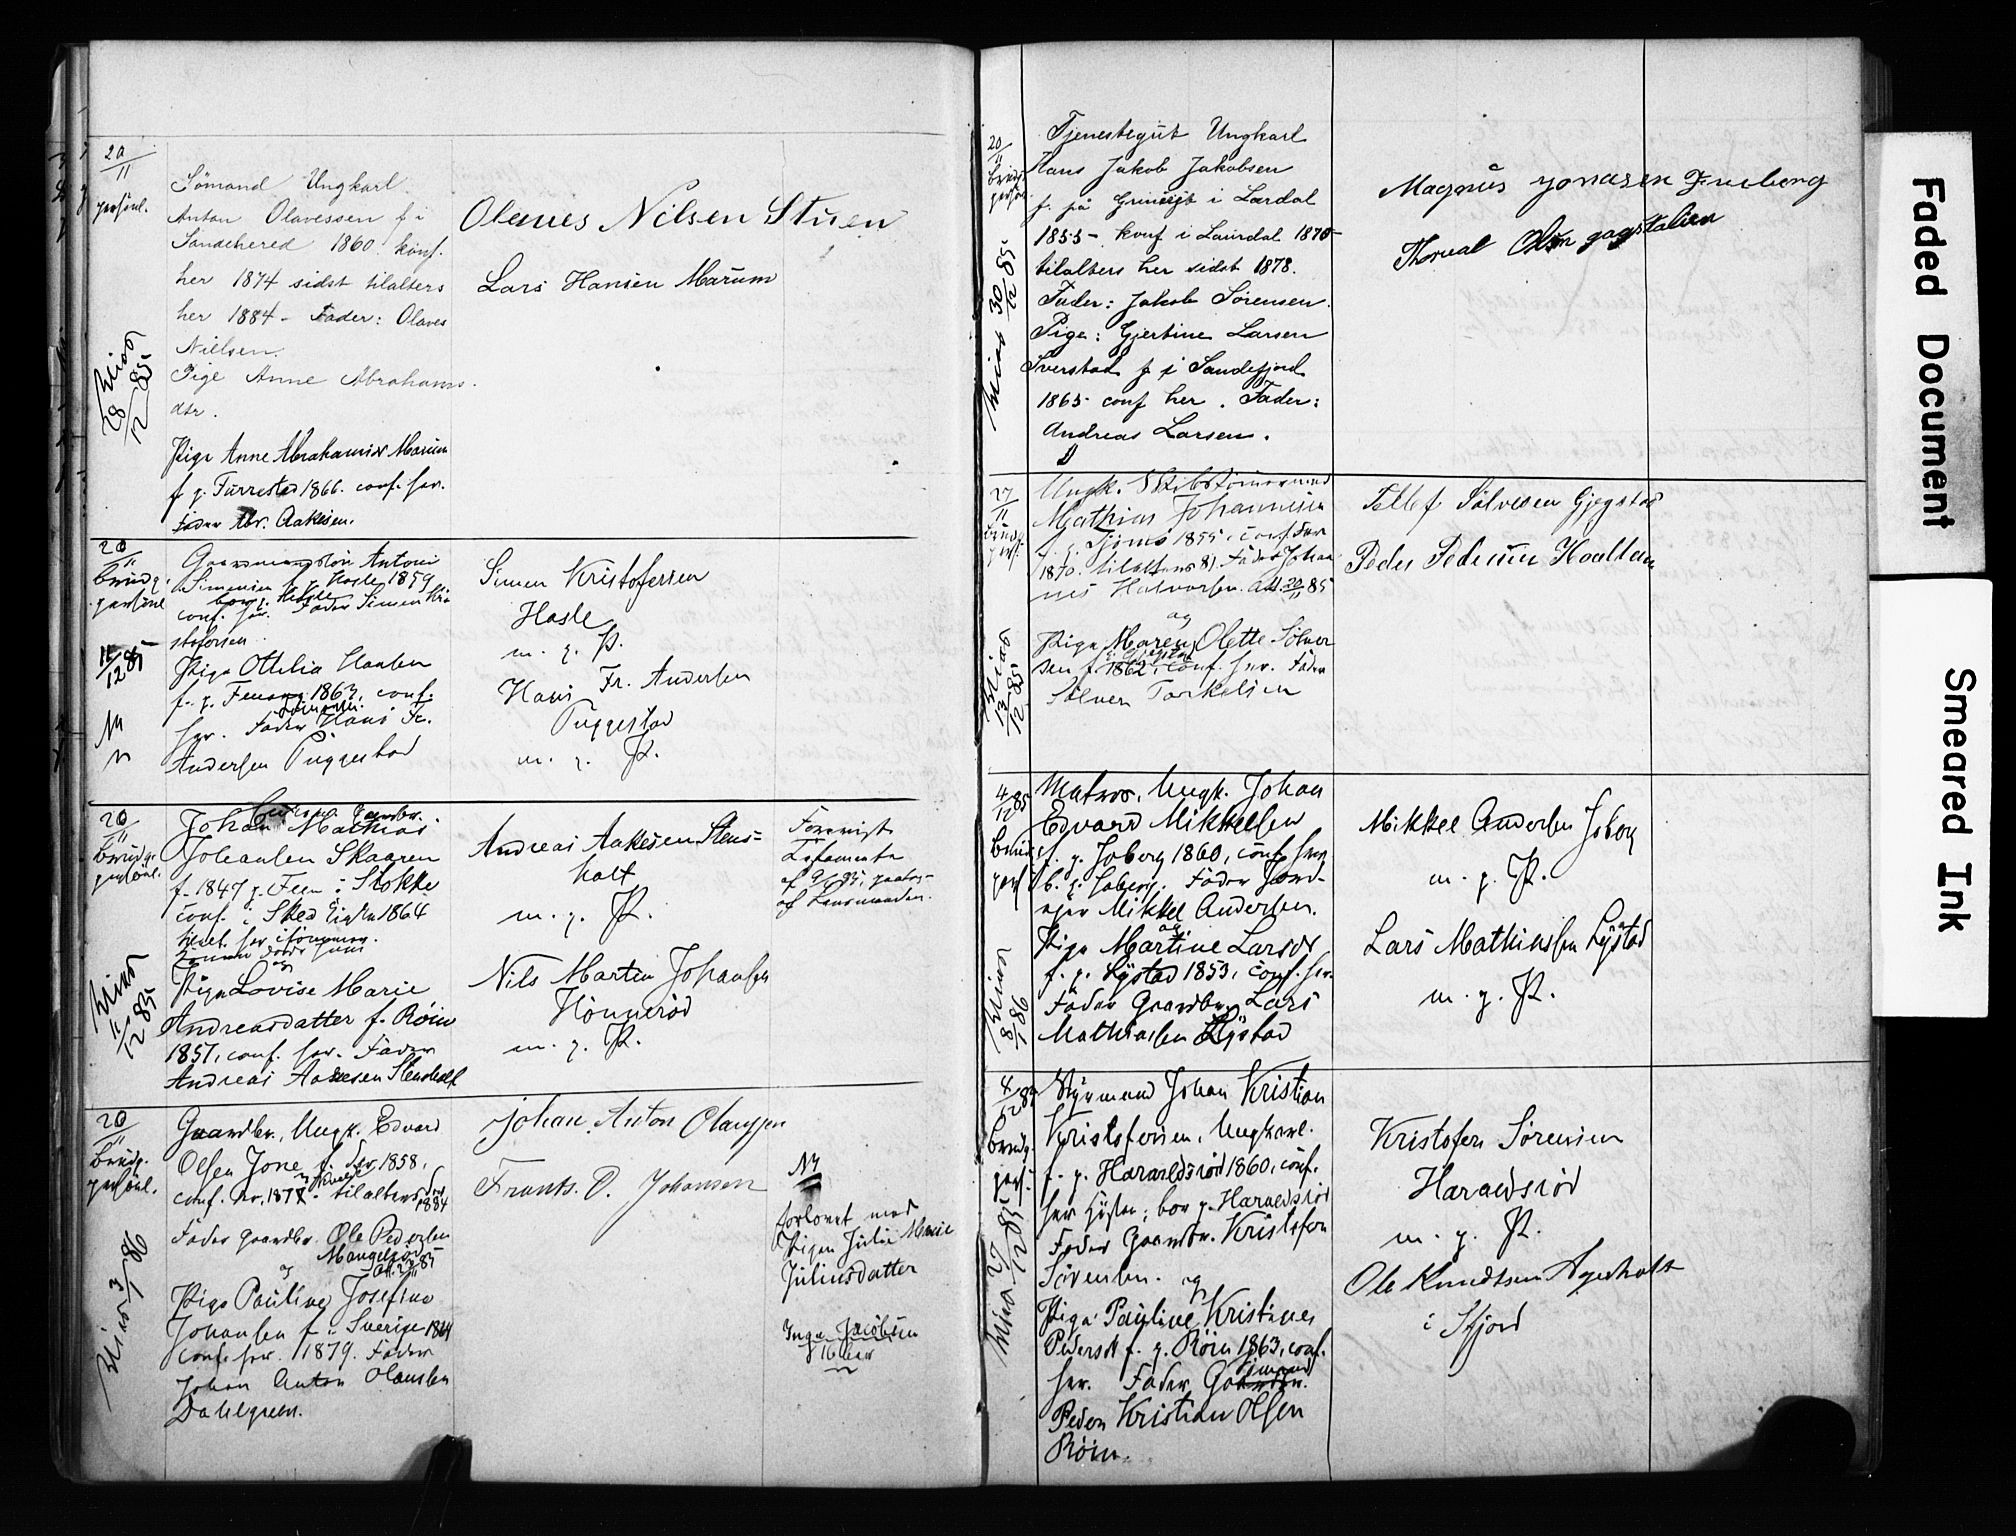 20/11
personl.
Viet 28/12 85
Sömand Ungkarl.
Anton Olavessen f i
Sandehered 1860 konf.
her 1874 sidst tilalters
her 1884 - Fader: Olaves
Nielsen.
Pige Anne Abrahams
dtr.
Pige Anne Abrahamsdr Marum
f. p. Furrestad 1866. conf. her.
Fader Abr. Aakesen.
Olaves Nilsen Stuen
Lars Hansen Marum
20/11
Brudg.
personl
11/12 85
Gaardmandssön Antoni
Simensen f. p. Hasle 1859
bor p. Hasle
conf. her. Fader Simen Kri
stofersen
Pige Othilia Hansen
f. p. Fevang 1863, conf.
her. Fader Hans Fr.
Andersen Puggestad
Simen Kristofersen
Hasle
m. p. P.
Hans Fr. Andersen
Puggestad
m. p. P.
20/11
Brudg.
personl.
Viet 11/12 85
Johan Mathias
Johansen Skaaren
f. 1847 p. Feen i Stokke
conf. i Skee 1864
og
Pige Lovise Marie
Andreasdatter f. Röiu
1857, conf. her. Fader
Andreas Aakesen Stensholt
Andreas Aakesen Stens-
holt
m. p. P.
Nils Martin Johansen
Hönneröd
m. p. P.
Forevist
af Lensmanden.
20/11
Brudg.
personl.
Viet 3/1 86
Gaardbr. Ungk. Edvard
Olsen Jone f. der 1858,
tilalters der 1884
Fader Gaardbr. Ole Pedersen
og
Pige Pauline Josefine
Johansen f. i Sverige 1864
conf. her. 1879. Fader
Johan Anton Olaussen
Dahlgreen.
Johan Anton Olaussen
Frants. O. Johansen
NB
forlovet med
Pigen Julie Marie
Juliusdatter
Inga Jacobsen
20/11
Brudg.
personl.
Viet 30/12 85
Tjenestegut Ungkarl
Hans Jakob Jakobsen
f. på i Lardal
1855 - konf i Laurdal 1870 -
tilalters her sidst 1878.
Fader: Jakob Sörensen.
Pige: Gjertine Larsen
Sverstad f i Sandefjord
1865 conf her. Fader:
Andreas Larsen.
Magnus Jonasen Freberg
Thorval Olsen
27/11
Brudg.
pers.
Viet 13/12 85
Ungk. Skibstömmermand
Mathias Johannesen
f. p. Tjömö 1855, conf. der
1870. tilalters 81. Fader Johan
nes Halvorsen. Att. 20/11 85
og
Pige Maren Olette Sölver
sen f. 1862, conf. her. Fader
Sölver Torkelsen
Tellef Sölvesen Gjegstad
Peder Pedersen Haaltan
4/12 85
Brudg.
pers.
Viet 8/1 86
Matros, Ungk. Johan
Edvard Mikkelsen
f. p. Joberg 1860, conf. her
b. p. Joberg. Fader Jord-
ejer Mikkel Andersen.
og
Pige Martine Larsdr.
f. p. Lystad 1853, conf. her.
Fader Gaardbr. Lars
Mathiassen Lystad
Mikkel Andersen Joberg
m. p. P.
Lars Mathiassen Lystad
m. p. P.
4/12 85
Brudg.
pers.
Viet 27/12 85
Styrmand Johan Kristian
Kristofersen, Ungkarl.
f. p. Haraldsröd 1860, conf.
her; bor p. Haraldsröd
Fader Gaardbr. Kristofer
Sörensen. og
Pige Pauline Kristine
Pedersdt f. p. Röiu 1863, conf.
her. Fader Sömand
Peder Kristian Olsen
Röiu.
Kristofer Sörensen
Haraldsröd
m. p. P.
Ole Knudtsen Agerholt
i Sfjord
Faded Document
Smeared Ink